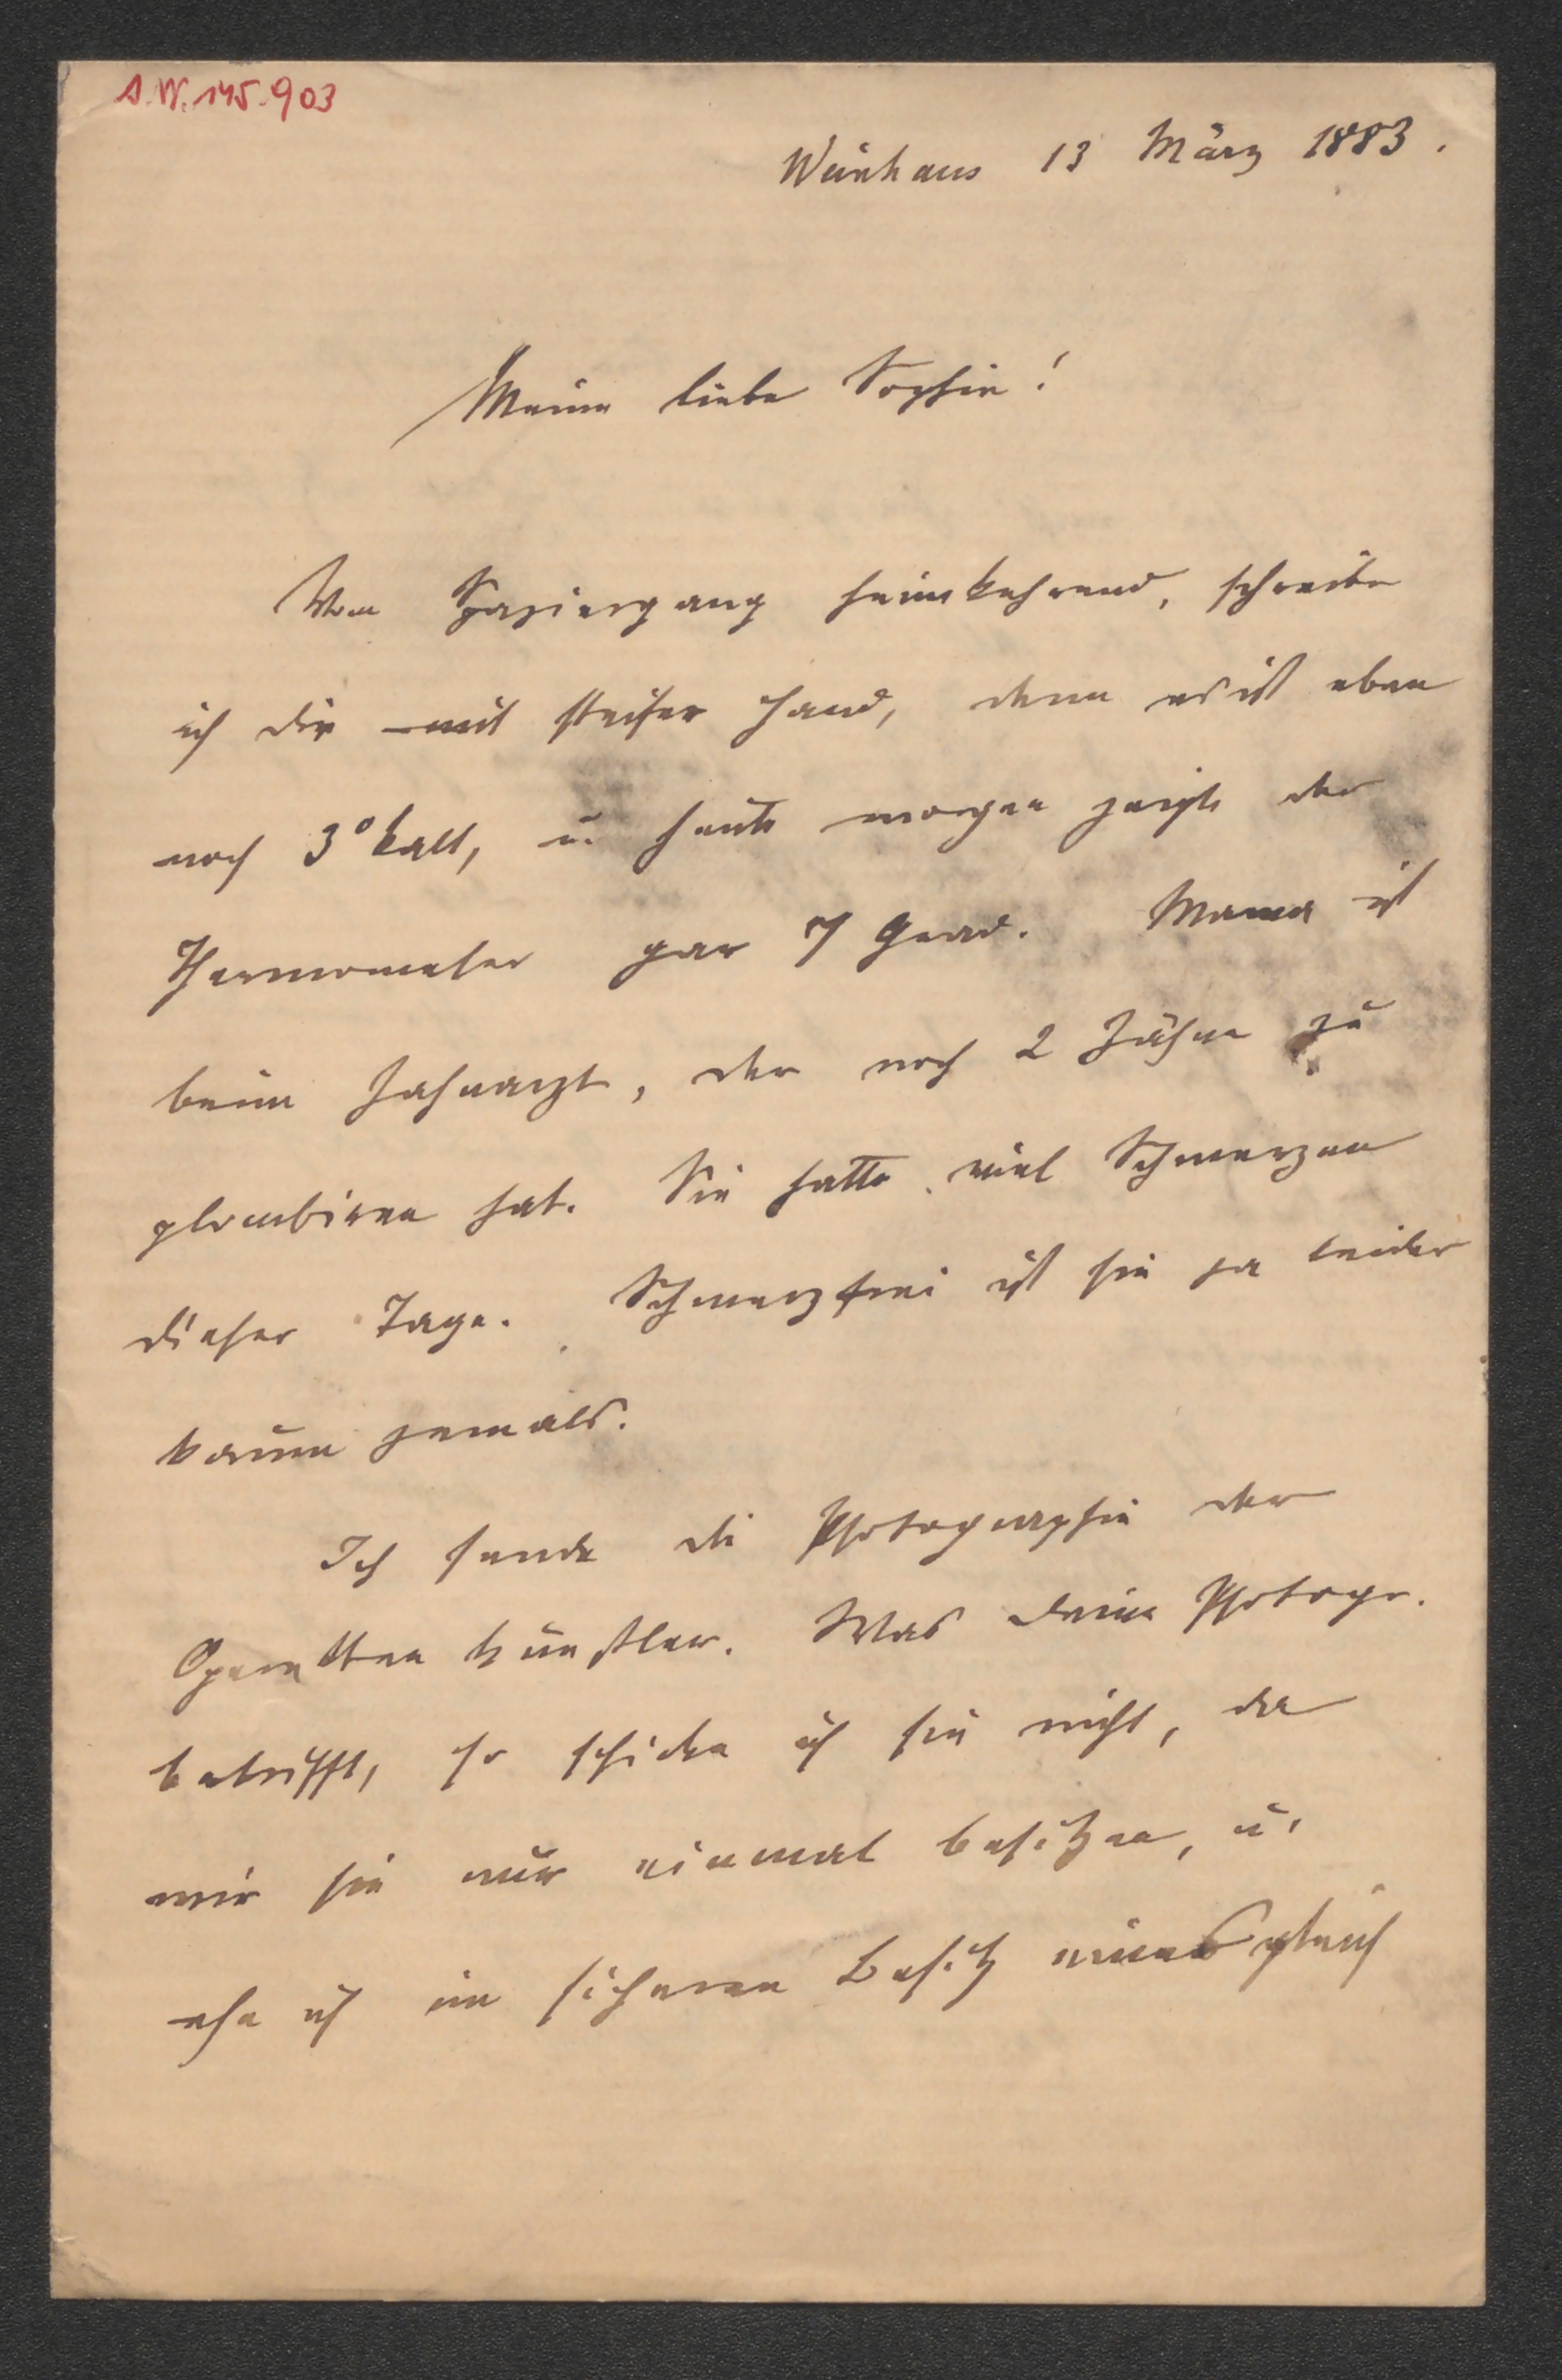 A.W. 145.903
Weinhaus 13 März 1883.
Meine liebe Sophie!
Vom Spaziergang heimkehrend, schreibe
ich dir mit steifer Hand, denn es ist eben
noch 3° kalt, u. heute morgen zeigte der
Thermometer gar 7 Grad. Mama ist
beim Zahnarzt, der noch 2 Zähne zu
plombiren hat. Sie hatte viel Schmerzen
dieser Tage. Schmerzfrei ist sie ja leider
kaum jemals.
Ich sende die Photographie der
Operettenkünstler. Was deine Photogr.
betrifft, so schicke ich sie nicht, da
wir sie nur einmal besitzen, u.
ehe ich im sicheren Besitz eines gleich